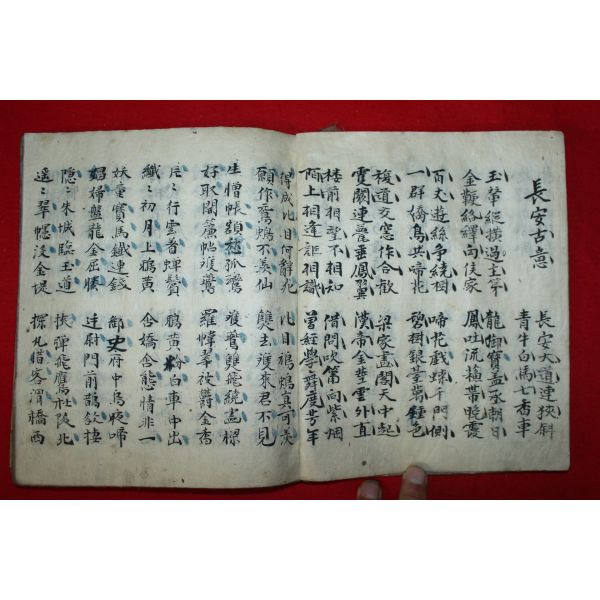 長安古意
長安大道連狹斜
青牛白馬七香車
玉輦縱橫過主第
金鞭絡繹向侯家
龍御寶盖承朝日
鳳吐流蘓帶晚霞
百丈遊絲争繞樹
一群嬌鳥共啼花
啼花戱蝶千門側
碧樹銀臺萬種色
複道交窓作合歡
雙闕連甍垂鳳翼
梁家畵閣天中起
漢帝金莖雲外直
樓前相望不相知
陌上相逢詎相識
借問吹簫向紫烟
曾經學舞度芳年
得成比目何辭死
願作鴛鴦不羡仙
比目鴛鴦真可羡
雙去雙來君不見
生憎帳額繡孤鸞
好取開簾帖雙鸞
雙鸞雙飛繞畵樑
羅幃翠被鬱金香
片〻行雲着蟬鬢
纖〻初月上鴉黃
鴉黃粉白車中出
含嬌含態情非一
妖童寶馬鐵連錢
娼婦盤龍金屈膝
御史府中烏夜啼
廷尉門前鵲欲棲
隱〻朱城臨玉道
遙〻翠幰沒金堤
挾彈飛鷹杜陵北
探丸借客渭橋西